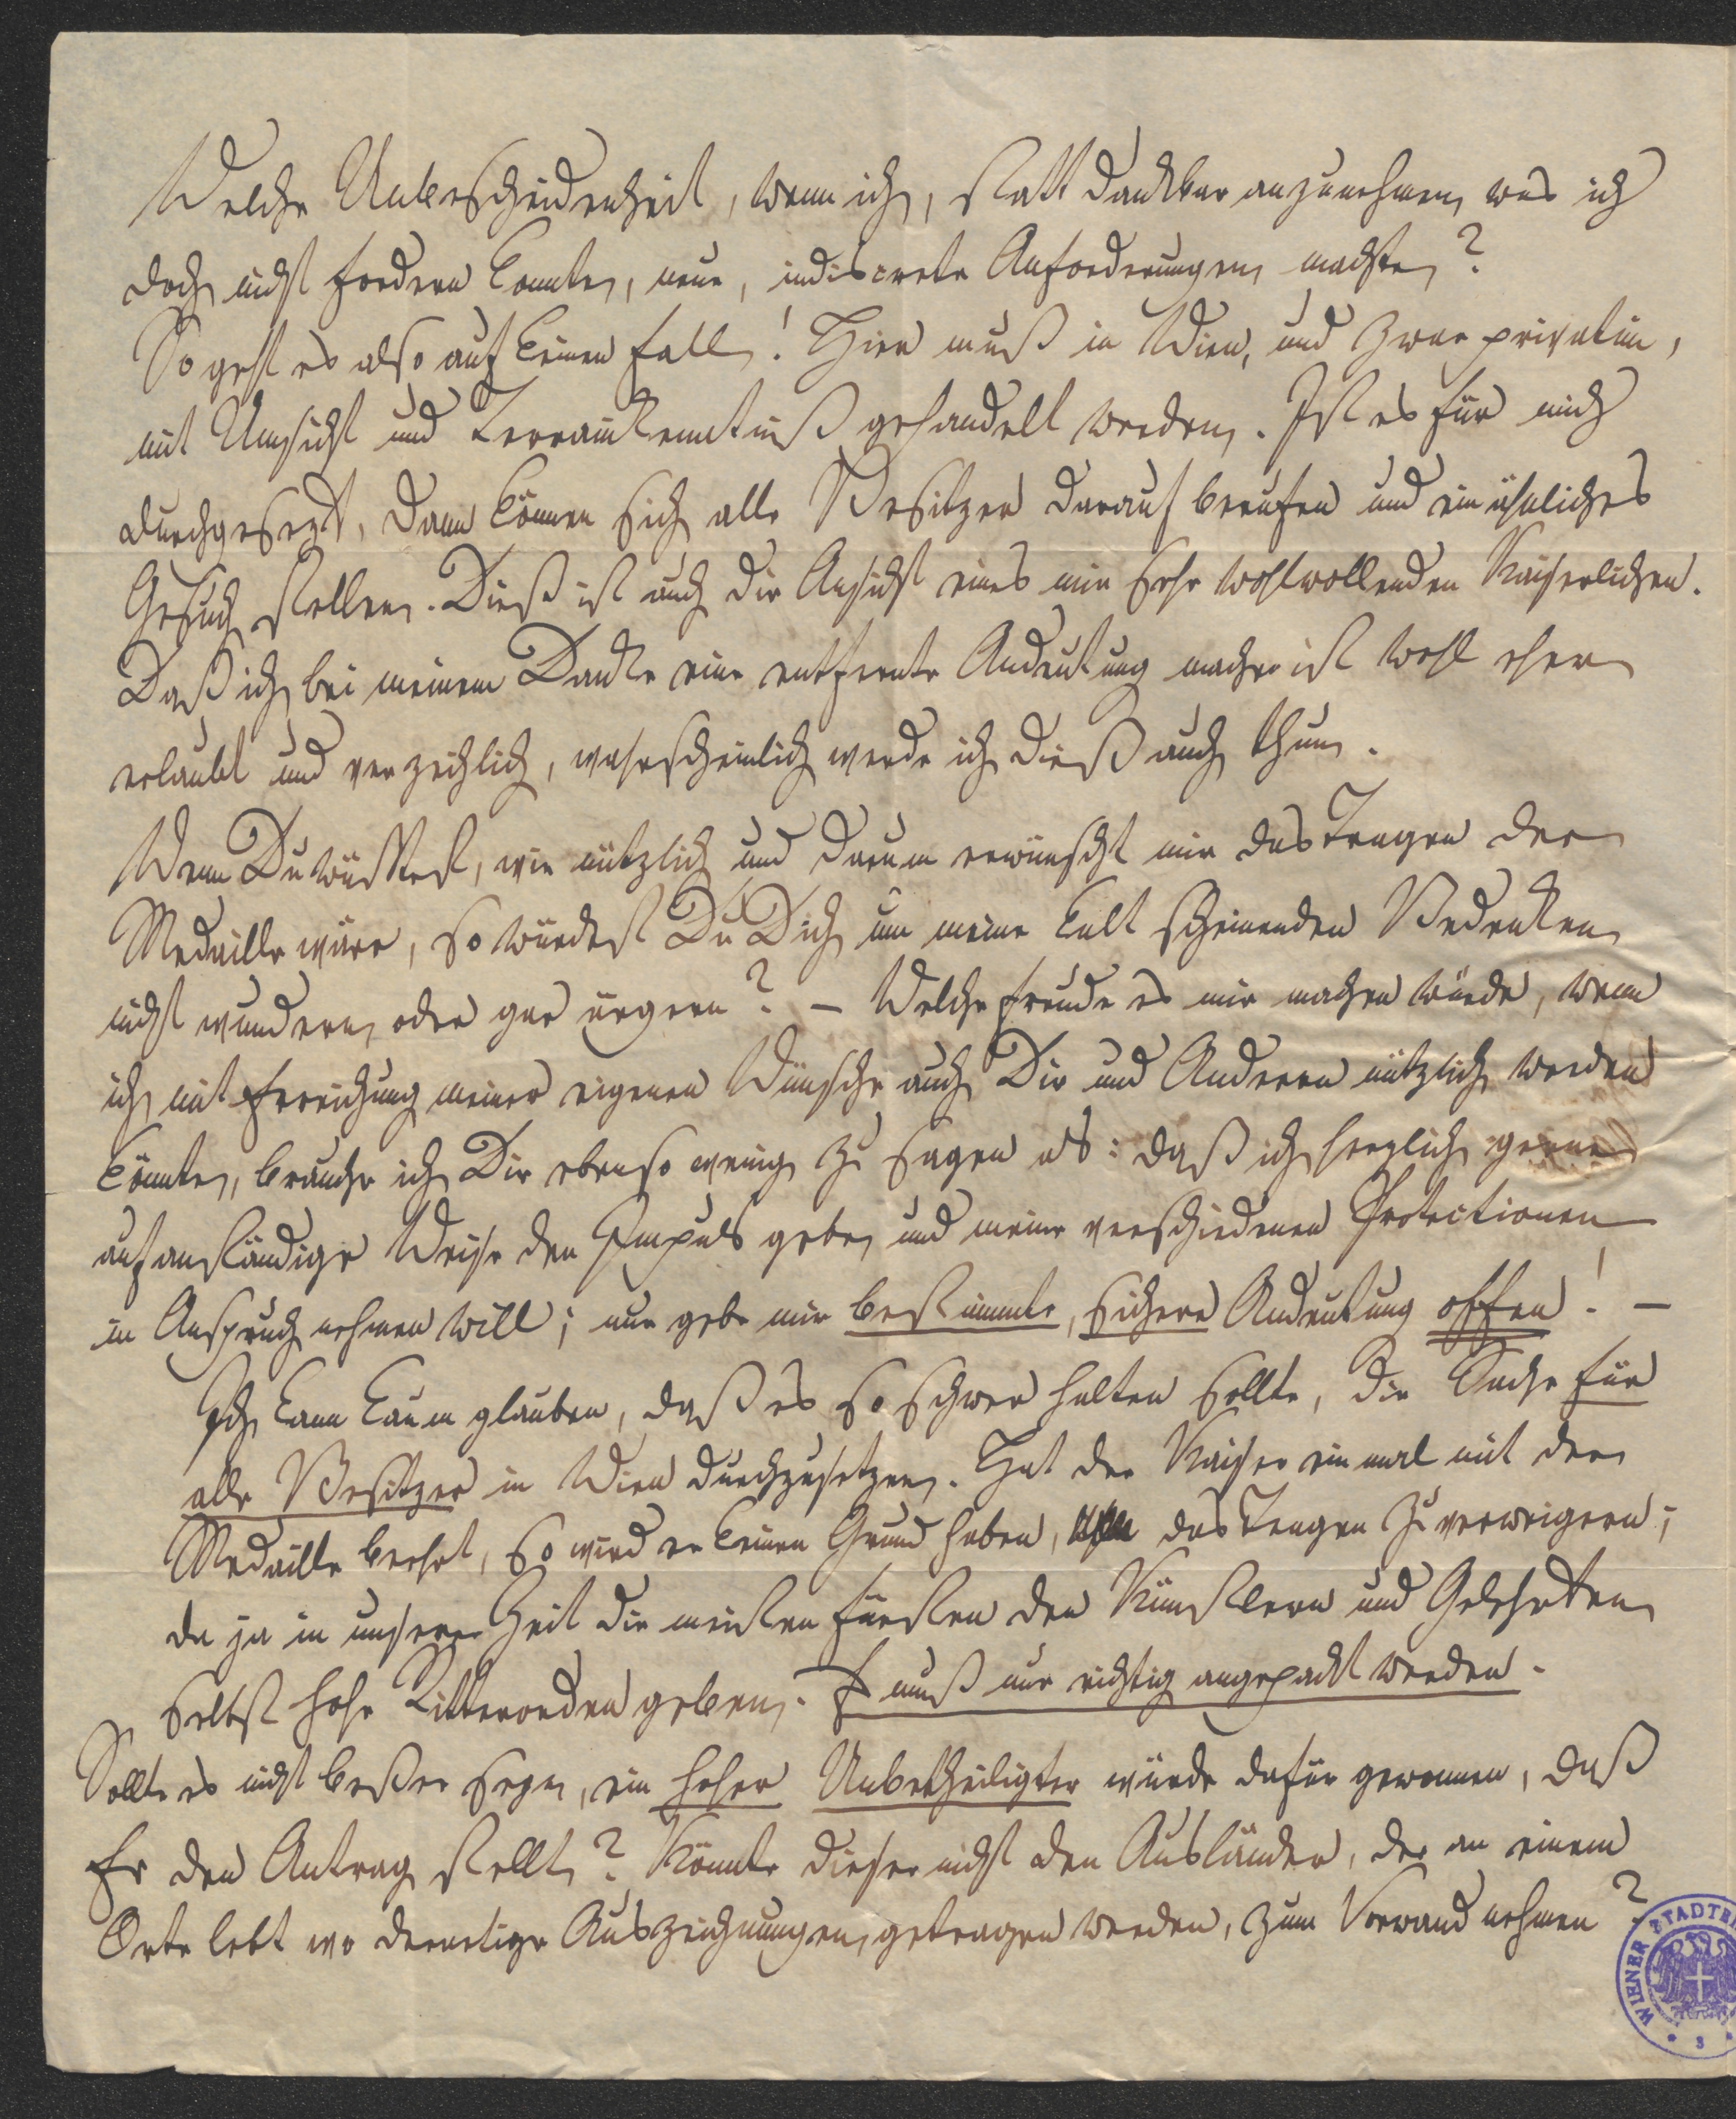 Welche Unbescheidenheit, wenn ich, statt dankbar anzunehmen, was ich
doch nicht fordern konnte, neue, indiscrete Anforderungen machte?
So geht es also auf keinen Fall! Hier muß in Wien, und zwar privatim,
mit Umsicht und Terrainkenntniß gehandelt werden. Ist es für mich
durchgesezt, dann können sich alle Besitzer darauf berufen und ein ähnliches
Gesuch stellen. Dieß ist auch die Ansicht eines mir sehr wohlwollenden Kaiserlichen.
Daß ich bei meinem Danke eine entfernte Andeutung mache ist wohl eher
erlaubt und verzeihlich, wahrscheinlich werde ich dieß auch thun.
Wenn Du wüßtest, wie nützlich und darum erwünscht mir das Tragen der
Medaille wäre, so würdest Du Dich um meine kalt scheinenden Bedenken
nicht wundern, oder gar ärgern? – Welche Freude es mir machen würde, wenn
ich mit Erreichung meiner eigenen Wünsche auch Dir und Anderen nützlich werden
könnte, brauche ich Dir ebenso wenig zu sagen als: daß ich herzlich gerne
auf anständige Weise den Impuls geben und meine verschiedenen Protectionen
in Anspruch nehmen will; nur gebe mir bestimmte, sichere Andeutung offen! –
Ich kann kaum glauben, daß es so schwer halten sollte, die Sache für
alle Besitzer in Wien durchzusetzen. Hat der Kaiser einmal mit der
Medaille beehrt, so wird er keinen Grund haben, das Tragen zu verweigern;
da ja in unserer Zeit die meisten Fürsten den Künstlern und Gelehrten
selbst hohe Ritterorden geben. Es muß nur richtig angepackt werden.
Sollte es nicht beßer seyn, ein hoher Unbetheiligter würde dafür gewonnen, daß
Er den Antrag stellt? Könnte dieser nicht den Ausländer, der an einem
Orte lebt wo derartige Auszeichnungen getragen werden, zum Vorwand nehmen?
WIENER STADTBI
3